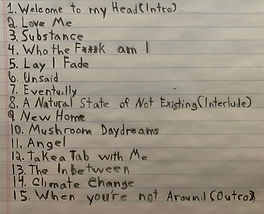 1. Welcome to my Head(Intro).
2. Love Me
3. Substance
4. Who the F***k am I
5. Lay I Fade
6. Unsaid
7. Eventully
8. A Natural State of Not Existing(Interlude)
9. New Home
10. Mushroom Daydreams
11. Angel
12. Take a Tab with Me
13. The Inbetween
14. Climate Change
15. When you're not Around(Outro)